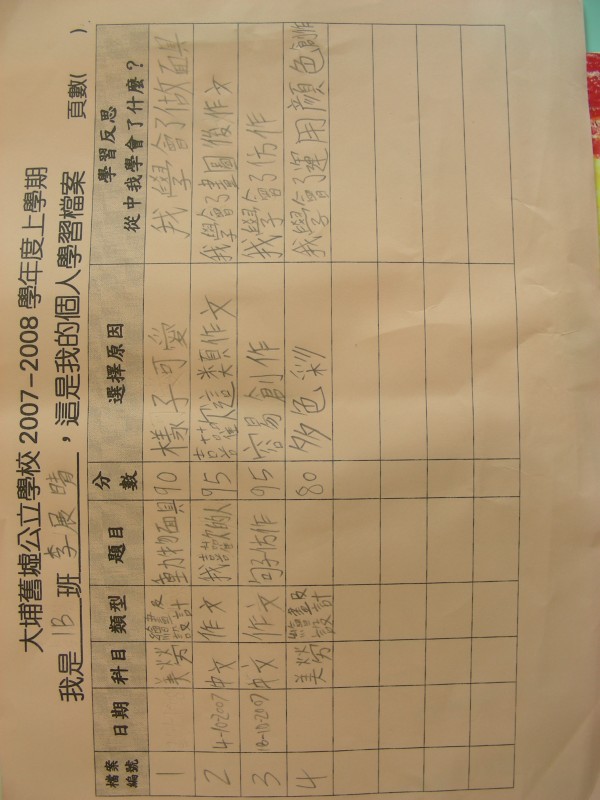 大埔舊墟公立學校 2007-2008 學年度上學期
我是 1B 班 李展晴 ，這是我的個人學習檔案 頁數( )
檔案編號 日期 科目 類型 題目 分數 選擇原因 學習反思 從中我學會了什麼？
1 美勞 繪畫及設計 動物面具 90 樣子可愛 我學會了做面具
2 4-10-2007 中文 作文 我喜歡的人 95 喜歡這類作文 我學會了畫圖後作文
3 18-10-2007 中文 作文 句子仿作 95 容易創作 我學會了仿作
4 美勞 繪畫及設計 80 多色彩 我學會了運用顏色創作